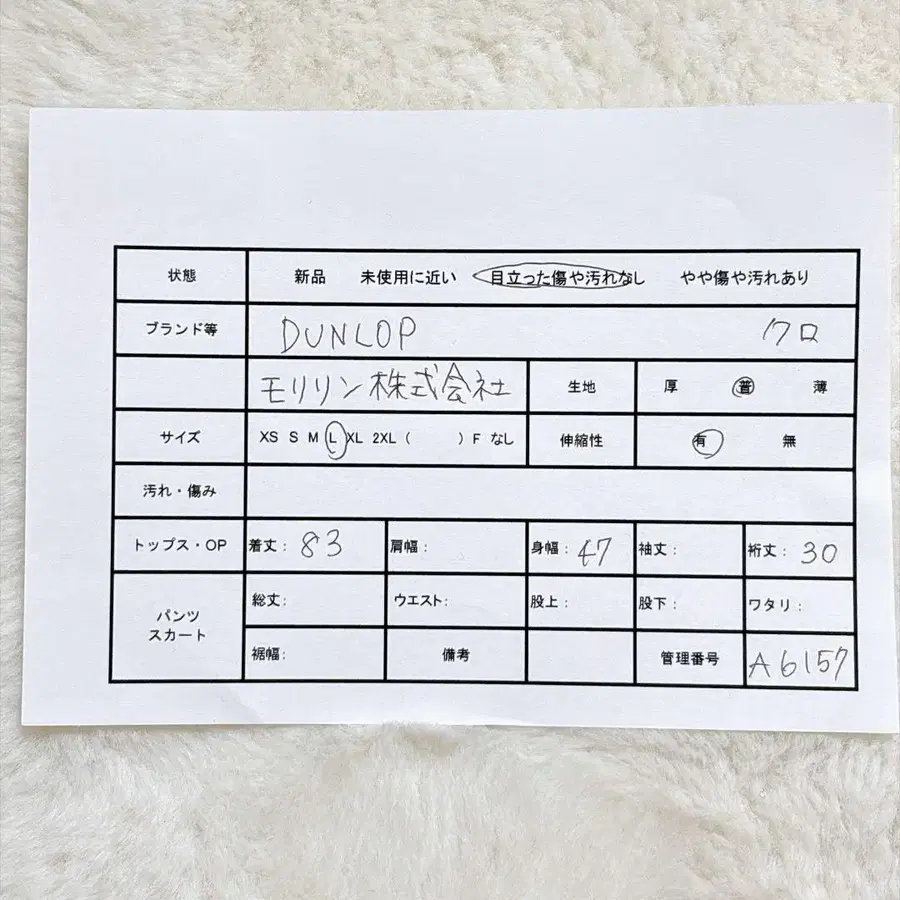 状態 新品 未使用に近い 目立った傷や汚れなし やや傷や汚れあり
ブランド等 DUNLOP クロ
モリリン株式会社 生地 厚 普 薄
サイズ XS S M L XL 2XL ( ) F なし 伸縮性 有 無
汚れ・傷み
トップス・OP 着丈: 83 肩幅: 身幅: 47 袖丈: 裄丈: 30
パンツ スカート 総丈: ウエスト: 股上: 股下: ワタリ:
裾幅: 備考 管理番号 A6157